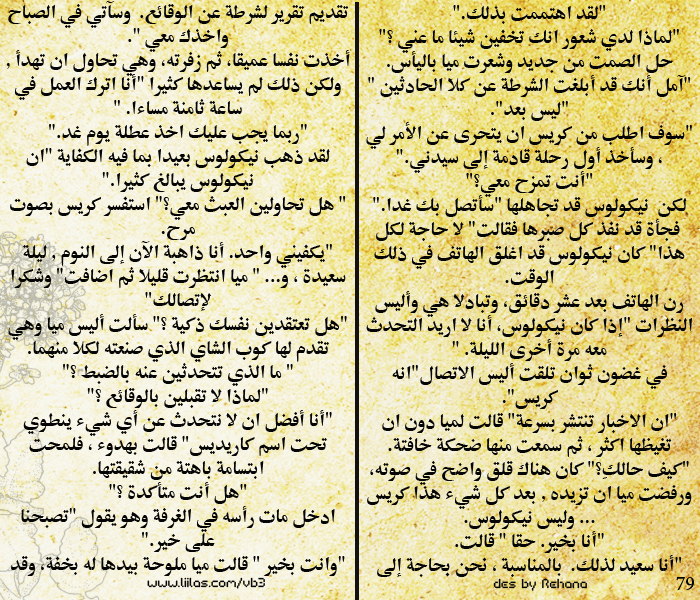 "لقد اهتممت بذلك."
"لماذا لدي شعور انك تخفين شيئا ما عني ؟"
حل الصمت من جديد وشعرت ميا باليأس.
"آمل أنك قد أبلغت الشرطة عن كلا الحادثين "
"ليس بعد".
"سوف اطلب من كريس ان يتحرى عن الأمر لي
، وسأخذ أول رحلة قادمة إلى سيدني."
"أنت تمزح معي؟"
لكن نيكولوس قد تجاهلها "سأتصل بك غدا."
فجأة قد نفذ كل صبرها فقالت" لا حاجة لكل
هذا" كان نيكولوس قد اغلق الهاتف في ذلك
الوقت.
رن الهاتف بعد عشر دقائق، وتبادلا هي وأليس
النظرات "إذا كان نيكولوس، أنا لا اريد التحدث
معه مرة أخرى الليلة. "
في غضون ثوان تلقت أليس الاتصال"انه
كريس".
"ان الاخبار تنتشر بسرعة" قالت لميا دون ان
تغيظها اكثر ، ثم سمعت منها ضحكة خافتة.
"كيف حالكِ؟" كان هناك قلق واضح في صوته،
ورفضت ميا ان تزيده , بعد كل شيء هذا كريس
... وليس نيكولوس.
"أنا بخير. حقا " قالت.
"أنا سعيد لذلك. بالمناسبة ، نحن بحاجة إلى
des by Rehana
79
تقديم تقرير لشرطة عن الوقائع. وسآتي في الصباح
واخذك معي ".
أخذت نفسا عميقا، ثم زفرته، وهي تحاول ان تهدأ ,
ولكن ذلك لم يساعدها كثيرا "أنا اترك العمل في
ساعة ثامنة مساءا. "
"ربما يجب عليك اخذ عطلة يوم غد."
لقد ذهب نيكولوس بعيدا بما فيه الكفاية "ان
نيكولوس يبالغ كثيرا."
" هل تحاولين العبث معي؟" استفسر كريس بصوت
مرح.
"يكفيني واحد. أنا ذاهبة الآن إلى النوم , ليلة
سعيدة ، و... " ميا انتظرت قليلا ثم اضافت" وشكرا
لإتصالك"
"هل تعتقدين نفسك ذكية ؟" سألت أليس ميا وهي
تقدم لها كوب الشاي الذي صنعته لكلا منهما.
" ما الذي تتحدثين عنه بالضبط ؟"
"لماذا لا تقبلين بالوقائع ؟"
"أنا أفضل ان لا نتحدث عن أي شيء ينطوي
تحت اسم كاريديس" قالت بهدوء ، فلمحت
ابتسامة باهتة من شقيقتها.
"هل أنت متأكدة ؟"
ادخل مات رأسه في الغرفة وهو يقول "تصبحنا
على خير."
"وانت بخير " قالت ميا ملوحة بيدها له بخفة، وقد
www.liilas.com/vb3